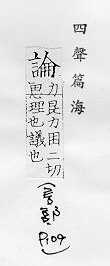 四聲篇海
論
力昆力田二切
思理也議也
(言部)
P.109